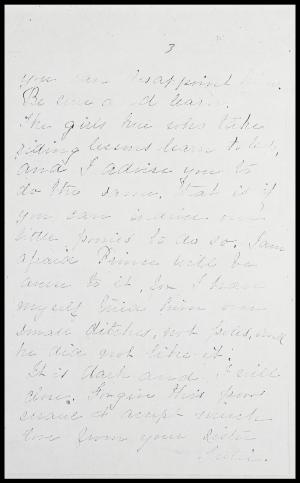 3
you can disappoint him.
Be sure and learn.
The girls here who take
riding lessons learn to
and I advise you to
do the same. That is if
you can induce our
little ponies to do so. I am
afraid Prince will be
to it, for I have
myself tried him over
small ditches, not poles, and
he did not like it.
It is dark and I will
close. Forgive this poor
& accept much
love from your sister